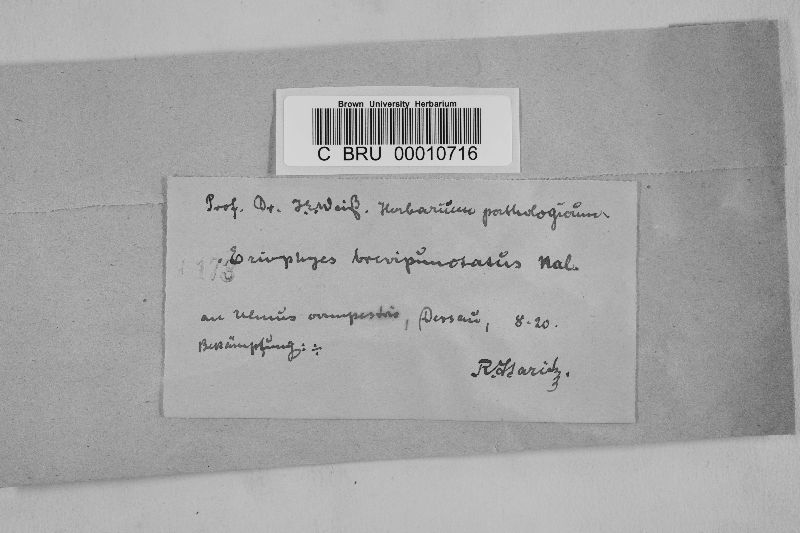 Brown University Herbarium
C BRU 00010716
Prof. Dr. Weiß. Herbarium pathologicum
173
Eriophyes brevipunctatus Nal.
an Ulmus campestris, Dessau, 8-20.
Bekämpfung: ÷
R. Staritz.